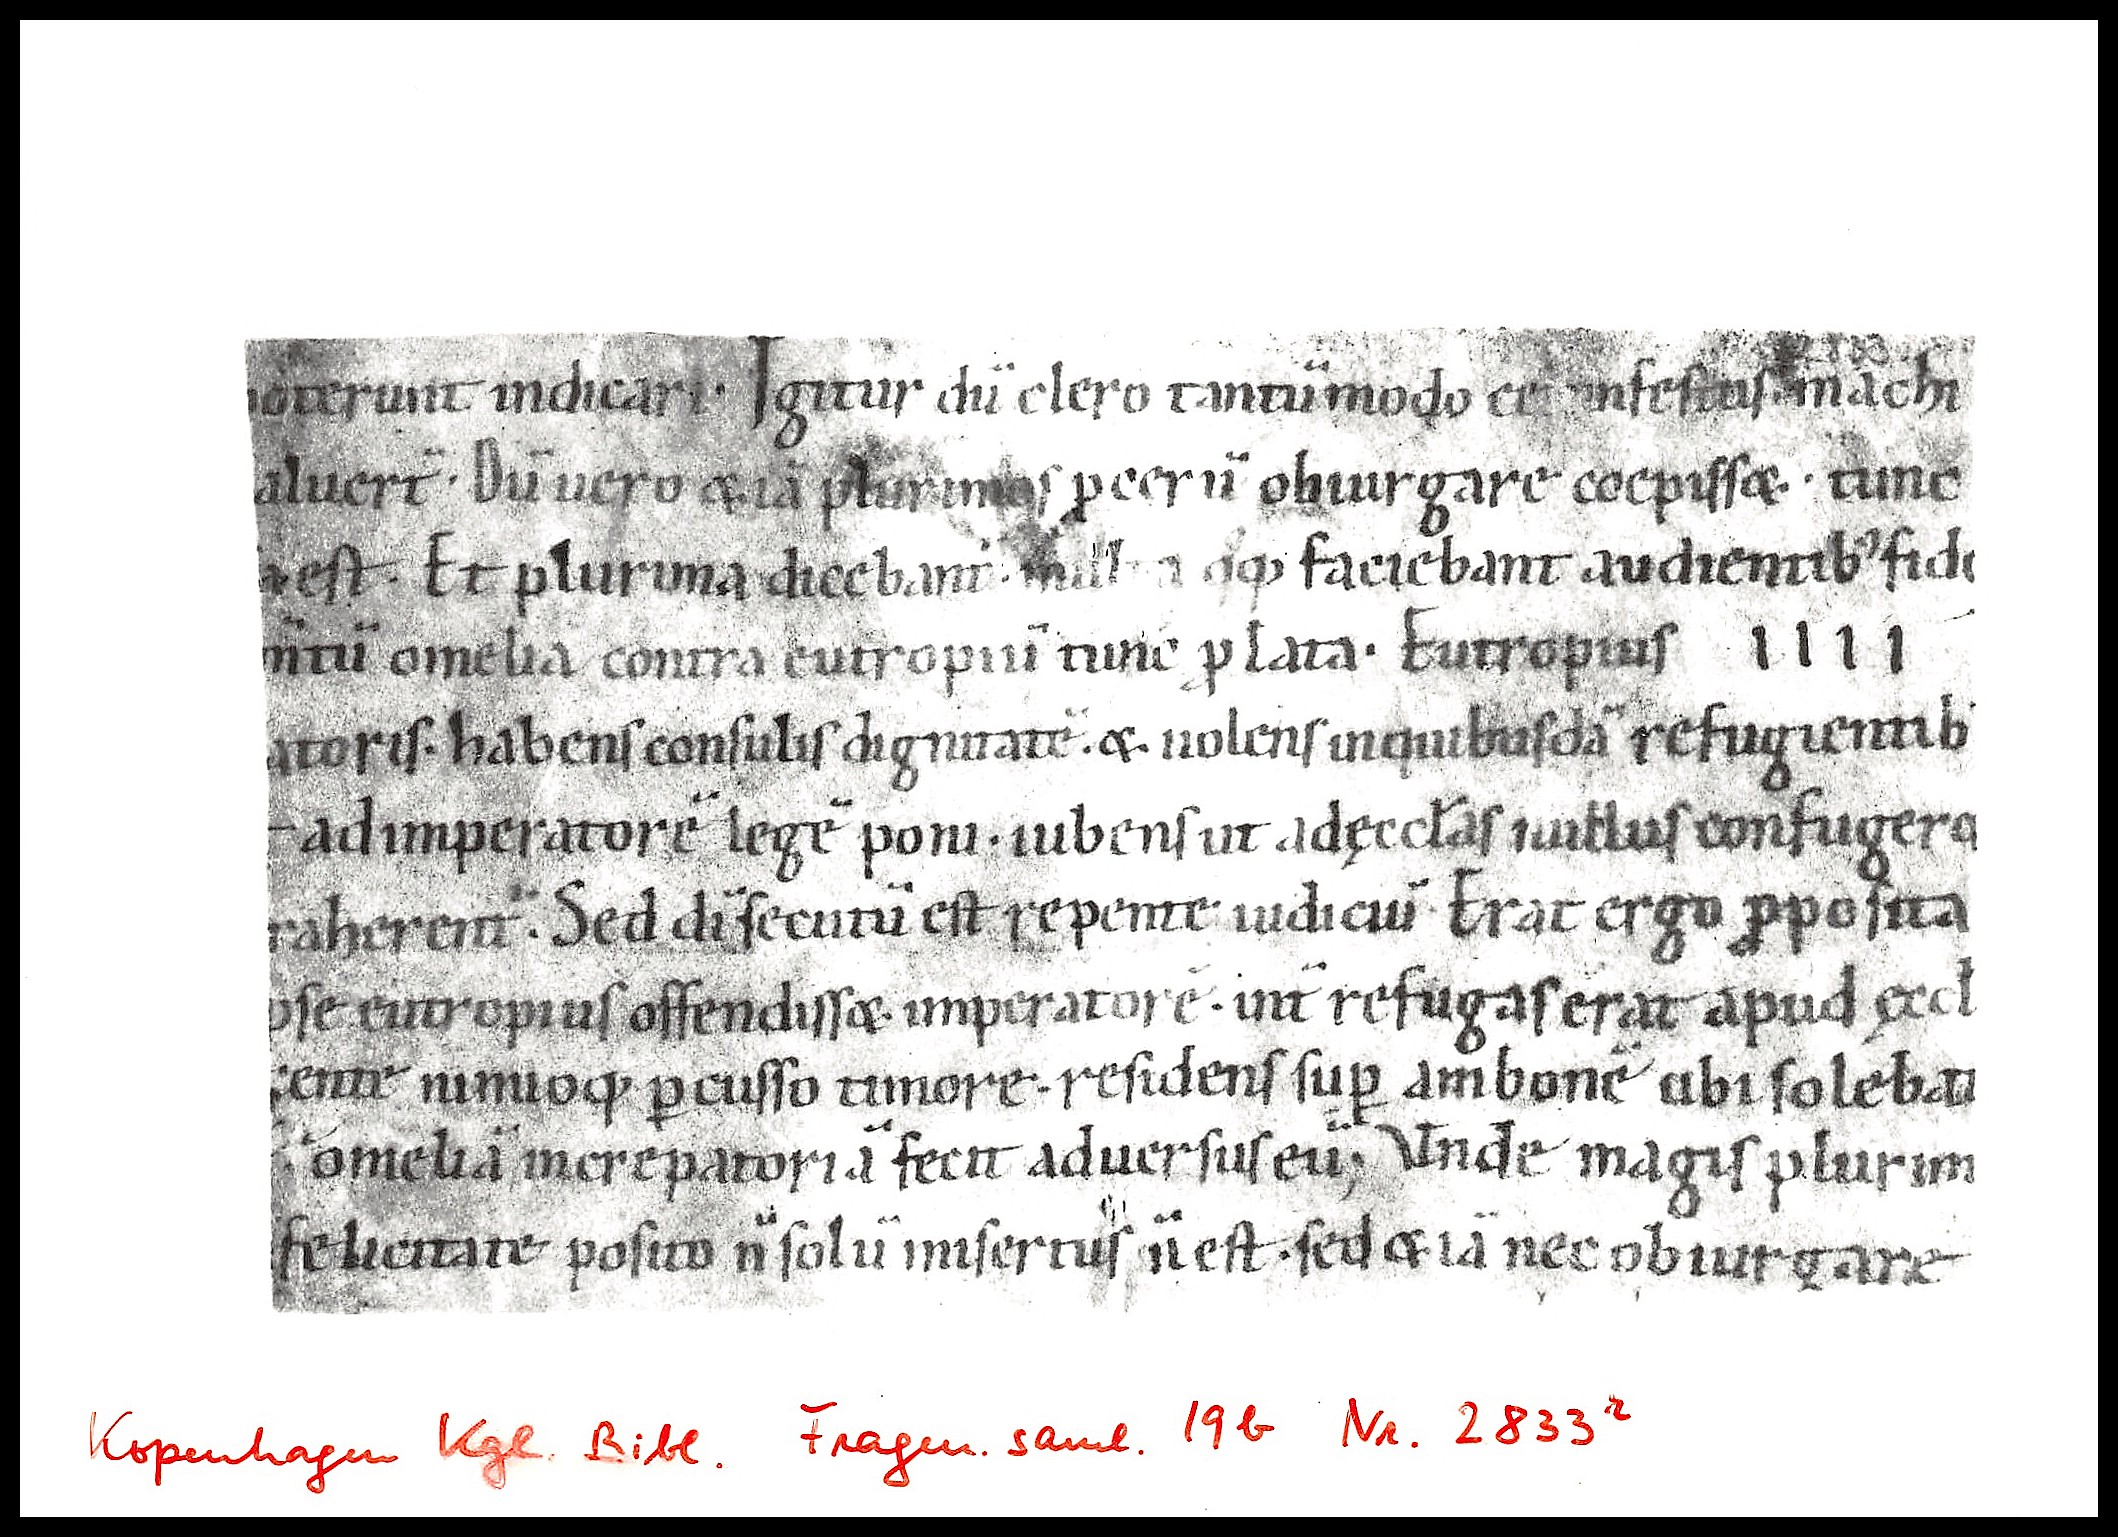 poterunt indicari· Igitur dū clero tantūmodo eē infestus· machi
aluert̄· Dū uero &iā plurimos pcerū obiurgare coepiss&· tunc
a est· Et plurima dicebant̄· multa q;q; faciebant audientib; fide
m̄tū omelia contra eutropiū tunc plata· Eutropius IIII
atoris· habens consulis dignitatē· & uolens inquibusdā refugientib
adimperatorē legē poni· iubens ut adęccl̄as nullus confugere
raherent̄· Sed dī secutū est repente iudiciū· Erat ergo pposita
pse eutropius offendiss& imperatorē· int̄ refugas erat apud ęccl
cente nimioq; pcusso timore· residens sup ambonē ubi solebat
omeliā increpatoriā fecit aduersus eū; Unde magis plurim
felicitate posito n̄ solū misertus n̄ est· sed &iā nec obiurgare
Kopenhagen Kgl. Bibl. Fragm. saml. 19b Nr. 2833 r